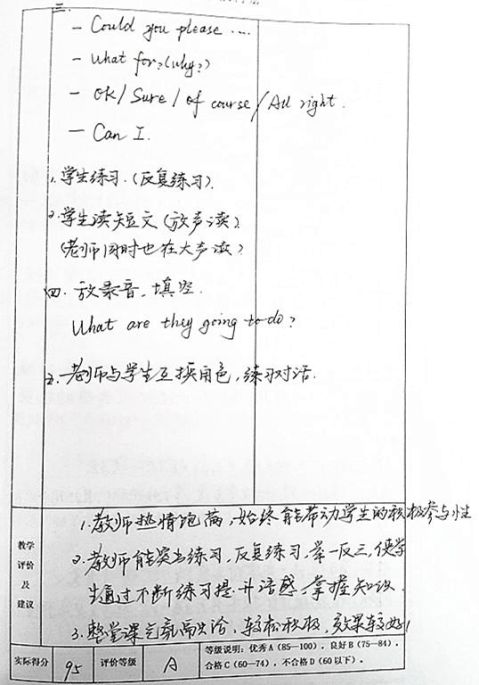 三.
- Could you please ....
- What for? (why?)
- OK / Sure / Of course / All right.
- Can I.
1. 学生练习. (反复练习).
2. 学生读短文 (放声读)
(老师同时也在大声读)
四. 放录音, 填空.
What are they going to do?
五. 老师与学生互换角色, 练习对话.
教学
评价
及
建议
1. 教师热情饱满, 始终能带动学生的积极参与性
2. 教师能突出练习, 反复练习, 举一反三, 使学
生通过不断练习提升语感, 掌握知识.
3. 整堂课气氛融洽, 轻松积极, 效果较好!
实际得分 95 评价等级 A 等级说明: 优秀 A (85—100), 良好 B (75—84),
合格 C (60—74), 不合格 D (60 以下).